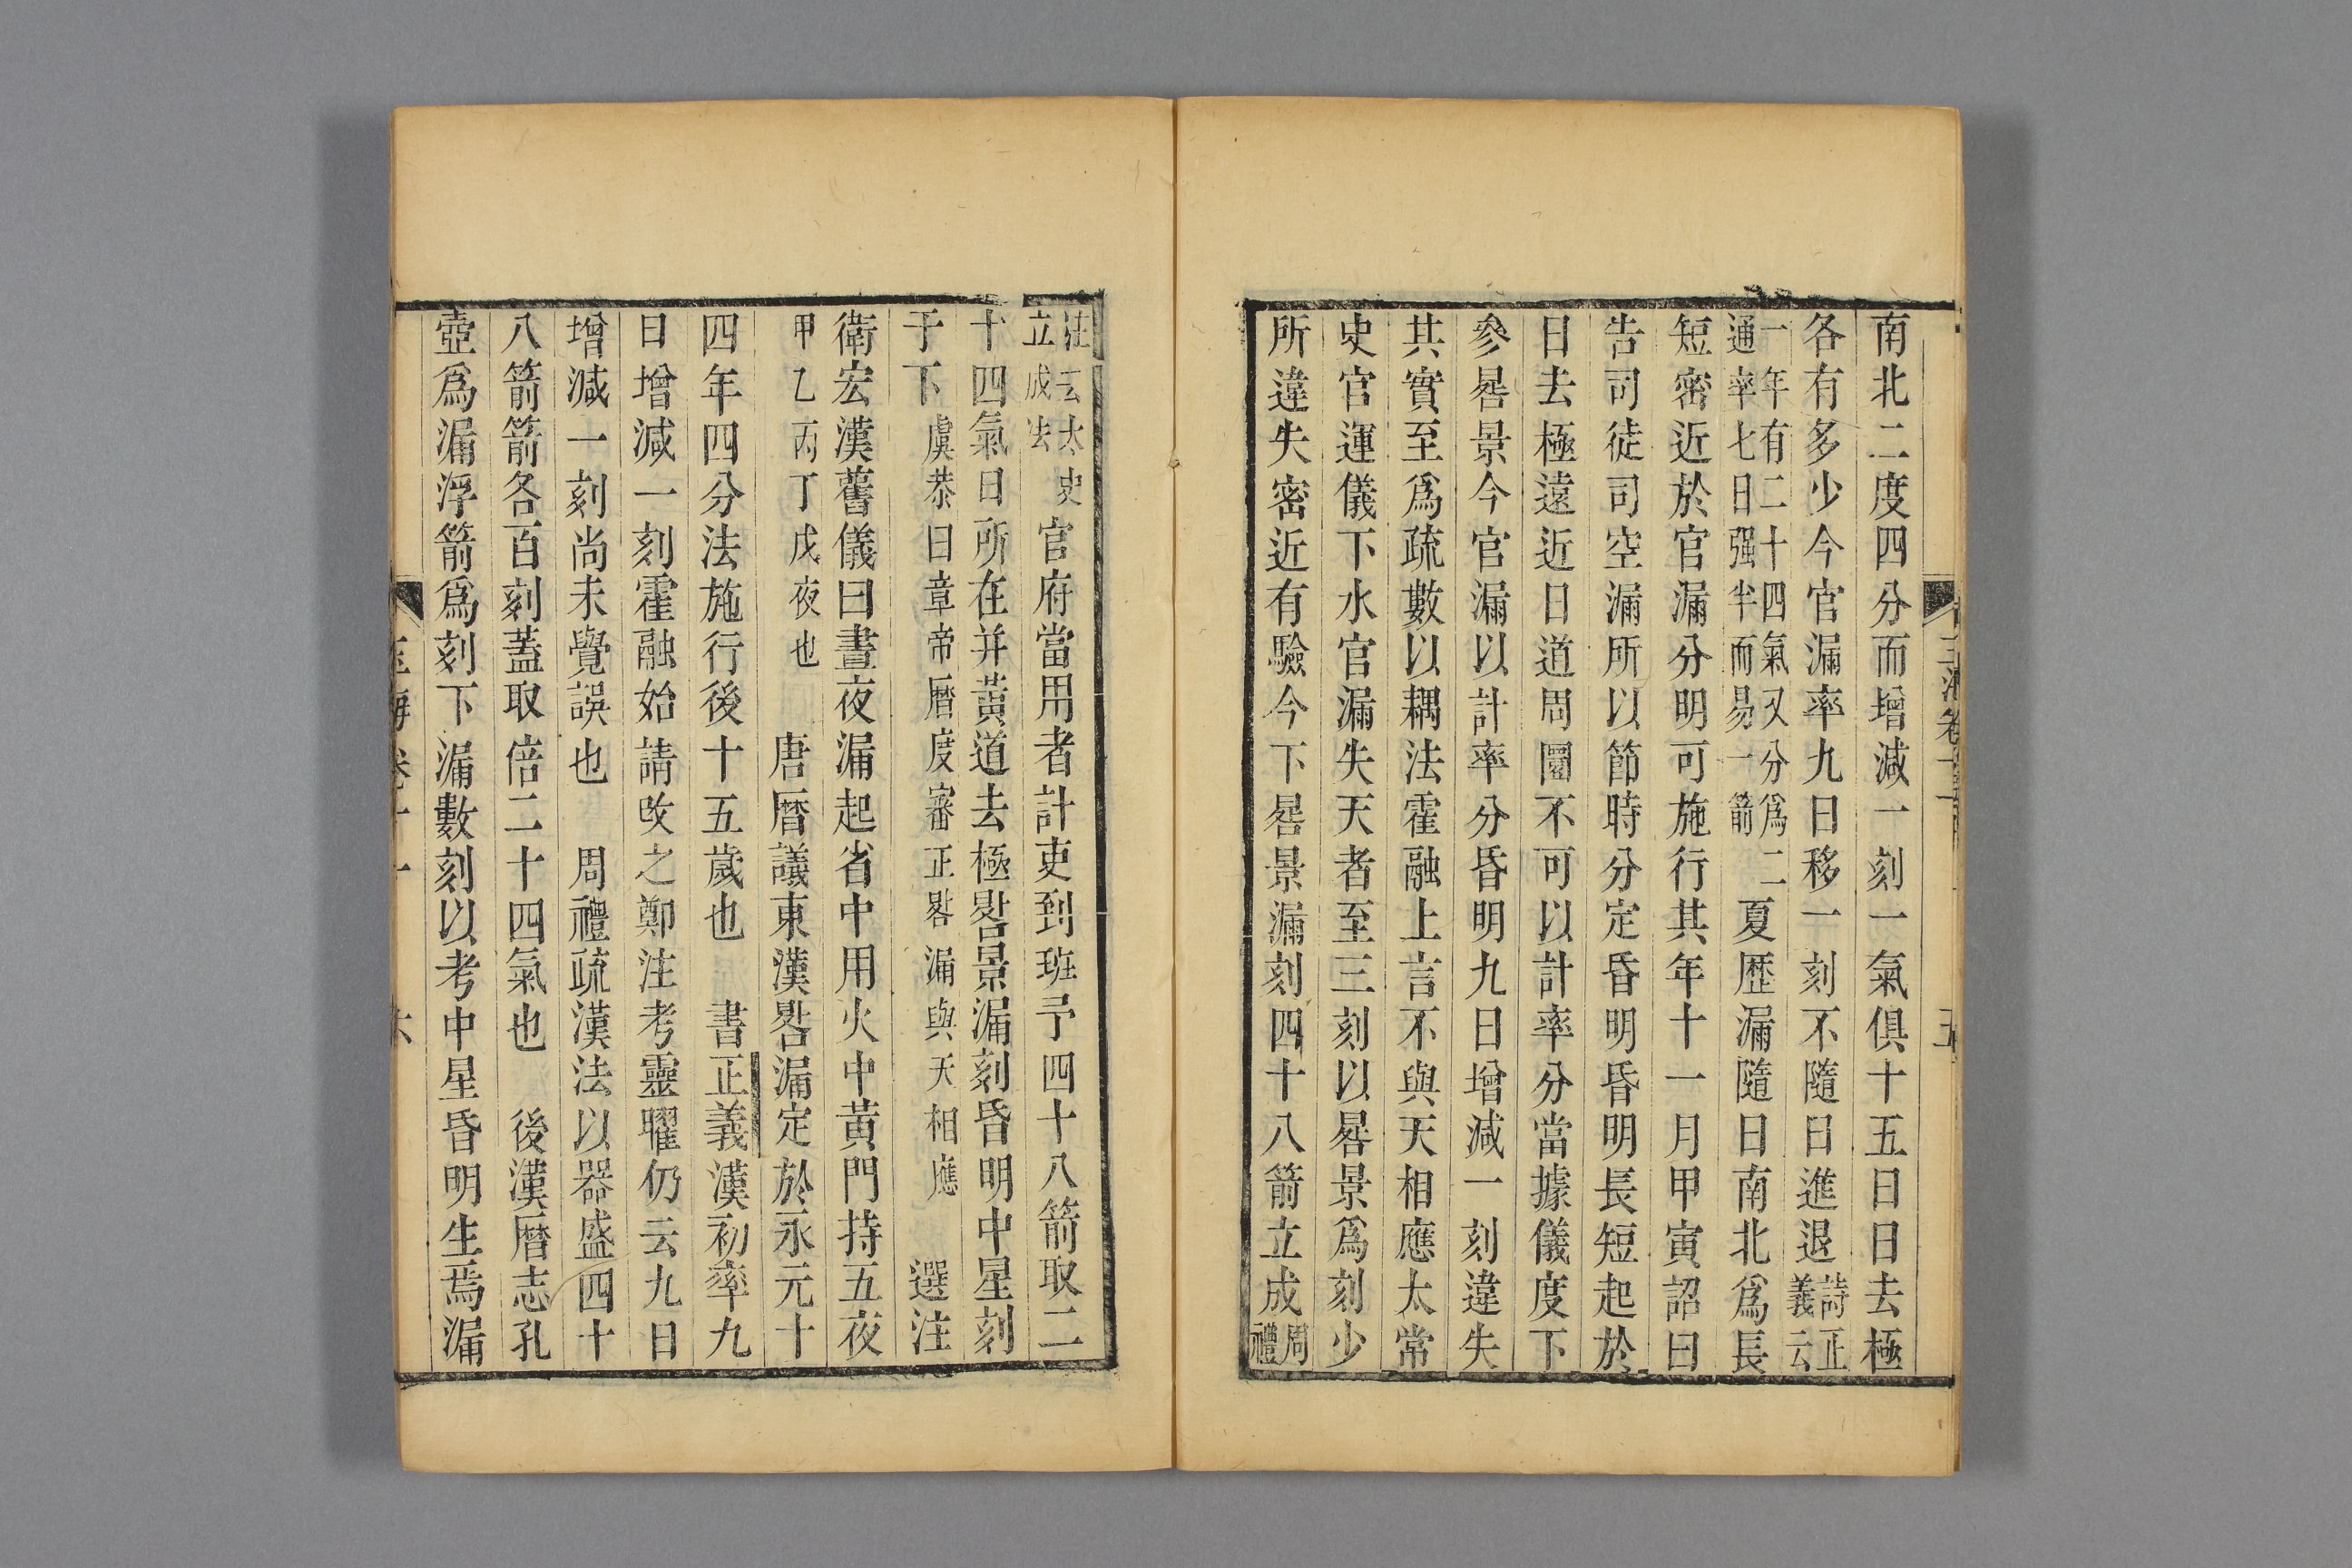 南北二度四分而增減一刻一氣俱十五日日去極
各有多少今官漏率九日移一刻不隨日進退詩正義云
一年有二十四氣又分爲二通率七日强半而易一箭夏歷漏隨日南北爲長
短密近於官漏分明可施行其年十一月甲寅詔曰
告司徒司空漏所以節時分定昏明昏明長短起於
日去極遠近日道周圜不可以計率分當據儀度下
參晷景今官漏以計率分昏明九日增減一刻違失
其實至爲疏數以耦法霍融上言不與天相應太常
史官運儀下水官漏失天者至三刻以晷景爲刻少
所違失密近有驗今下晷景漏刻四十八箭立成周禮
注云太史立成法官府當用者計吏到班予四十八箭取二
十四氣日所在并黃道去極晷景漏刻昏明中星刻
于下虞恭曰章帝曆度審正晷漏與天相應選注
衛宏漢舊儀曰晝夜漏起省中用火中黃門持五夜
甲乙丙丁戊夜也唐曆議東漢晷漏定於永元十
四年四分法施行後十五歲也書正義漢初率九
日增減一刻霍融始請改之鄭注考靈曜仍云九日
增減一刻尚未覺誤也周禮疏漢法以器盛四十
八箭箭各百刻蓋取倍二十四氣也後漢曆志孔
壺爲漏浮箭爲刻下漏數刻以考中星昏明生焉漏
玉海卷十一 六